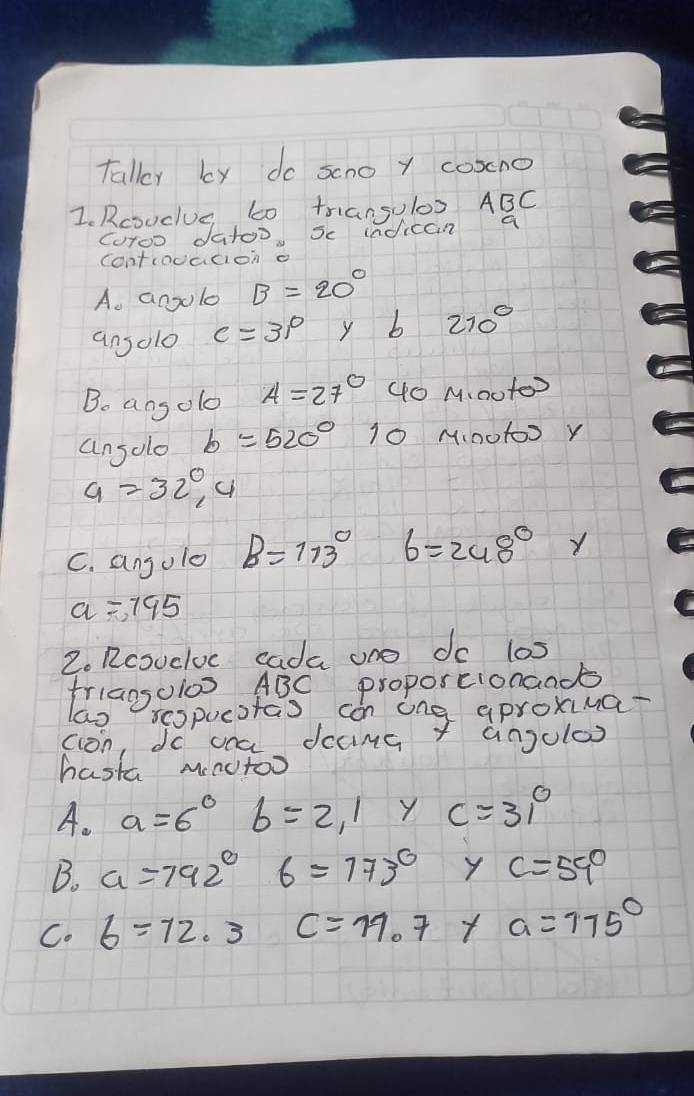 Taller ley de seno y coseno
1. Resuelve los triangulos ABC
cuyos datos se indican a
continuación
A. angulo B = 20°
angulo c = 31° y b 210°
B. angulo A = 27° 40 Minutos
angulo b = 520° 10 Minutos y
a = 32°,4
C. angulo B = 113° b = 248° y
a = 195
2. Resuelve cada uno de los
triangulos ABC proporcionando
las respuestas con una aproxima-
ción, de una decima y angulos
hasta Minutos
A. a = 6° b = 2,1 y c = 31°
B. a = 192° b = 173° y c = 59°
C. b = 12.3 C = 19.7 y a = 115°